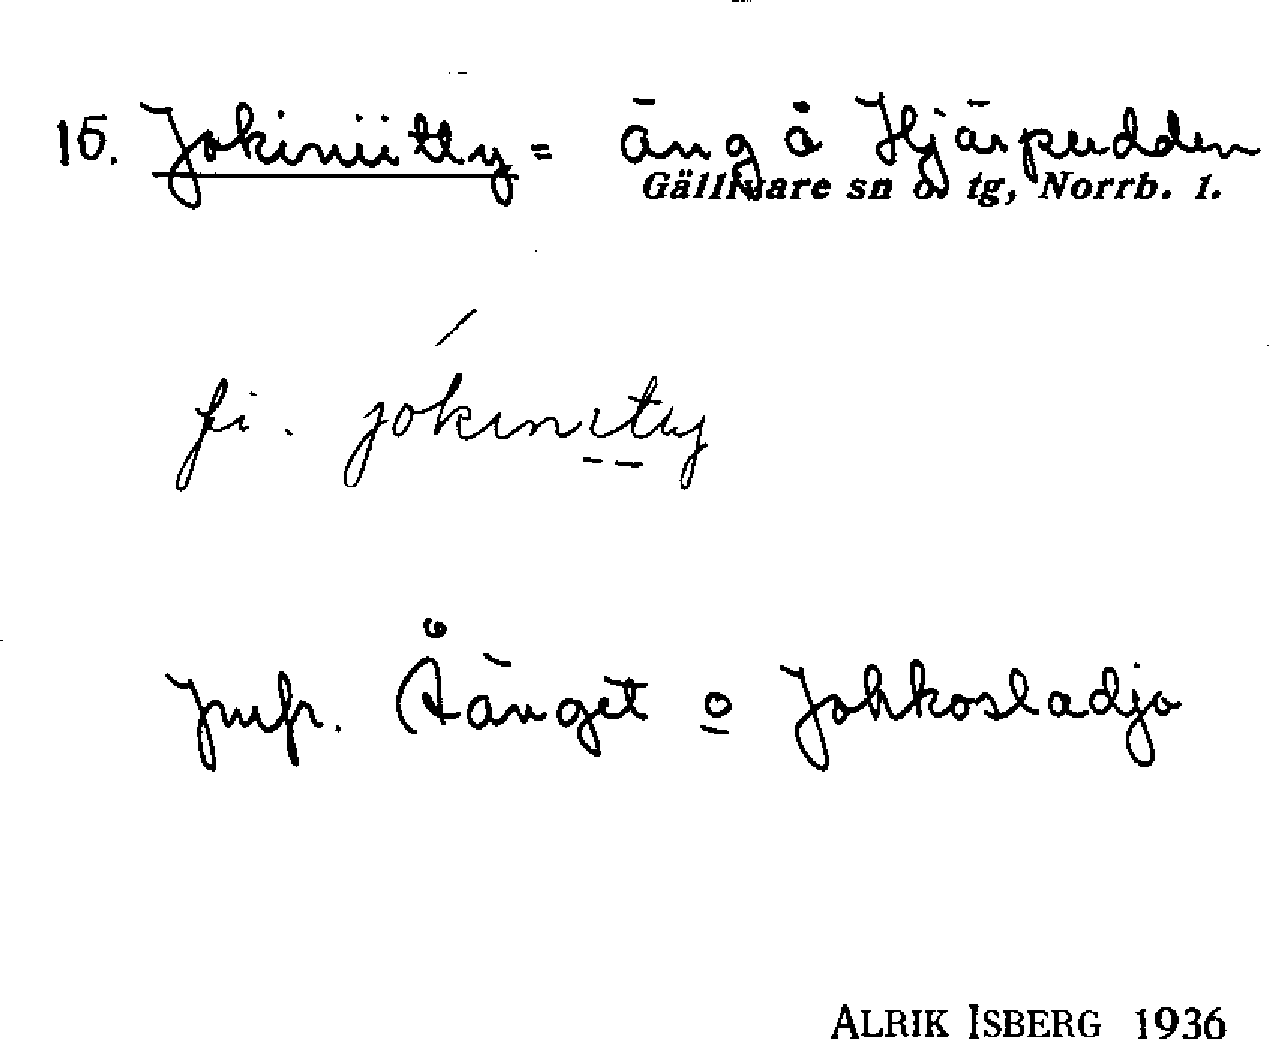 15. Jokiniitty = äng å Hjärpudden
Gällivare sn o. tg, Norrb. l.
fi. jokinıtıy
jmfr. Åänget o Johkosladjo
ALRIK ISBERG 1936